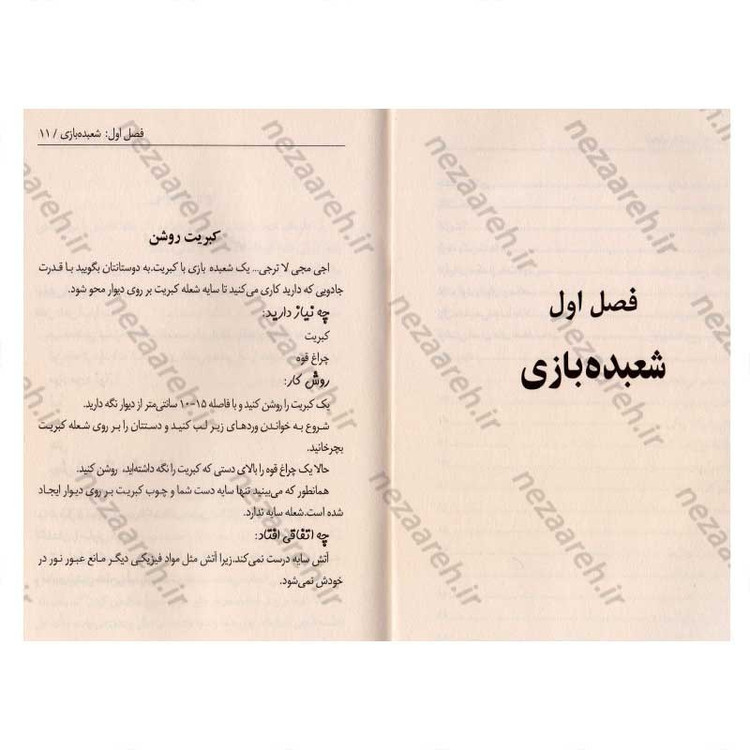 فصل اول
شعبده‌بازی
فصل اول: شعبده‌بازی / ۱۱
کبریت روشن
اجی مجی لا ترجی... یک شعبده بازی با کبریت.به دوستانتان بگویید با قدرت
جادویی که دارید کاری می‌کنید تا سایه شعله کبریت بر روی دیوار محو شود.
چه نیاز دارید:
کبریت
چراغ قوه
روش کار:
یک کبریت را روشن کنید و با فاصله ۱۵-۱۰ سانتی‌متر از دیوار نگه دارید.
شروع به خواندن وردهای زیر لب کنید و دستتان را بر روی شعله کبریت
بچرخانید.
حالا یک چراغ قوه را بالای دستی که کبریت را نگه داشته‌اید، روشن کنید.
همانطور که می‌بینید تنها سایه دست شما و چوب کبریت بر روی دیوار ایجاد
شده است.شعله سایه ندارد.
چه اتفاقی افتاد:
آتش سایه درست نمی‌کند.زیرا آتش مثل مواد فیزیکی دیگر مانع عبور نور در
خودش نمی‌شود.
nezaareh.ir
nezaareh.ir
nezaareh.ir
nezaareh.ir
nezaareh.ir
nezaareh.ir
nezaareh.ir
nezaareh.ir